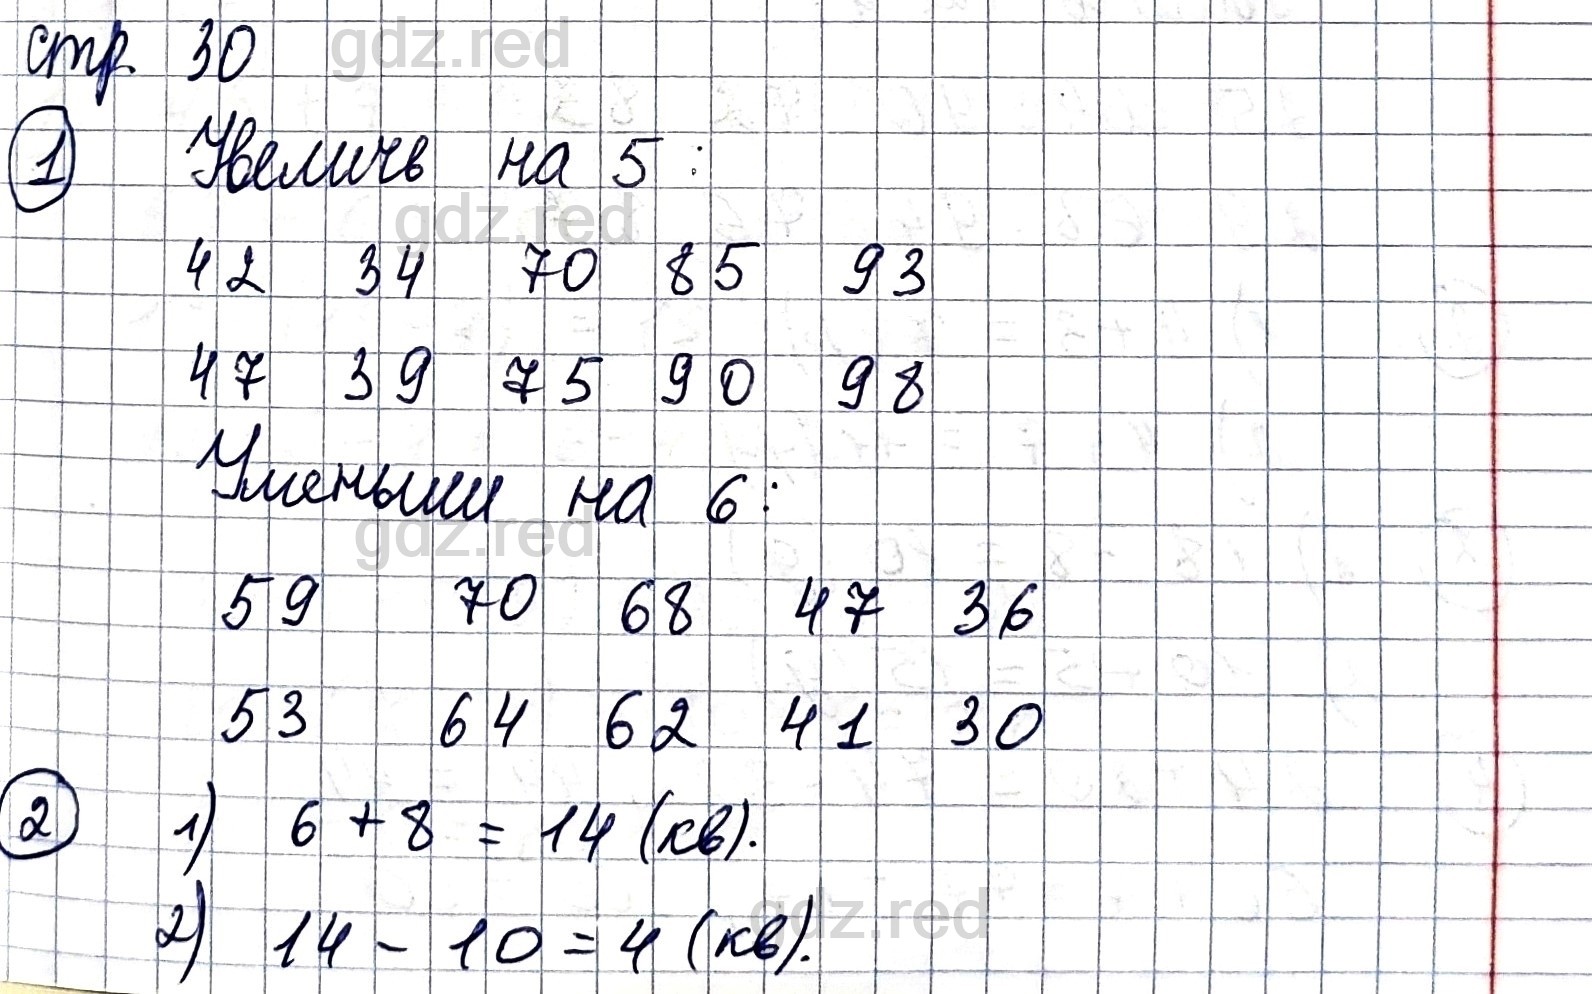 стр. 30 gdz.red
1 Увеличь на 5:
gdz.red
42 34 70 85 93
47 39 75 90 98
Уменьши на 6:
gdz.red
59 70 68 47 36
53 64 62 41 30
2 1) 6 + 8 = 14 (кв).
gdz.red
2) 14 - 10 = 4 (кв).